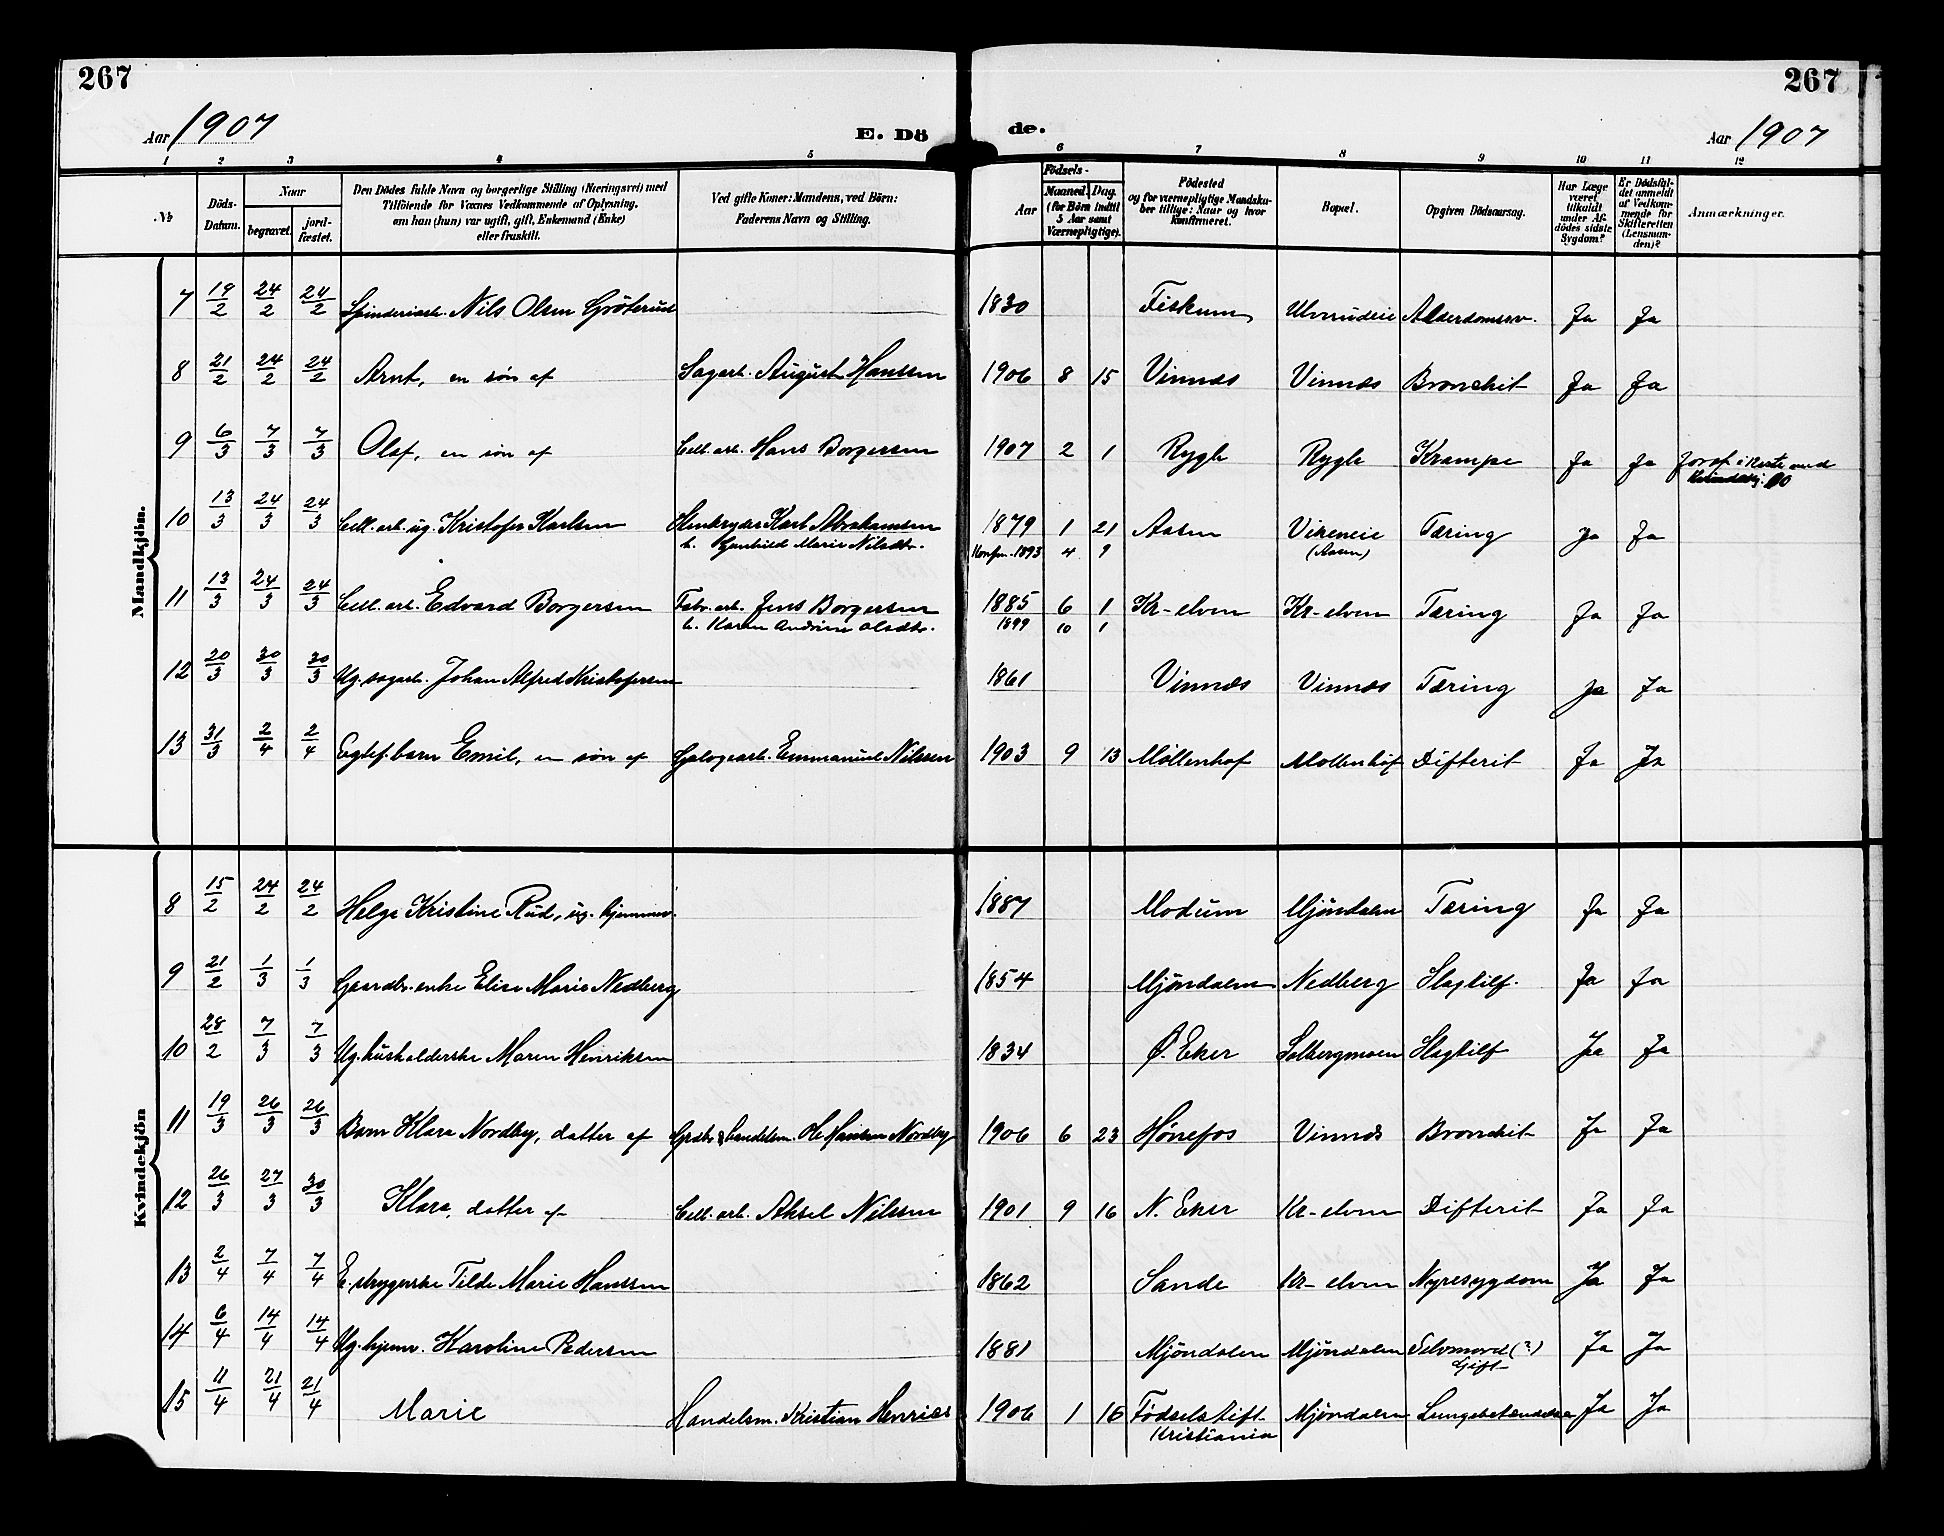 267
267
Aar 1907
E. Dö
de.
Aar 1907
1 2 3 4 5 6 7 8 9 10 11 12
№
Döds-Datum.
Naar
begravet.
jordfæstet.
Den Dödes fulde Navn og borgerlige Stilling (Næringsvei) med
Tilföiende for Voxnes Vedkommende af Oplysning,
om han (hun) var ugift, gift, Enkemand (Enke)
eller fraskilt.
Ved gifte Koner: Mandens, ved Börn:
Faderens Navn og Stilling.
Födsels-
Aar
Maaned. Dag.
(for Börn indtil
5 Aar samt
Værnepligtige).
Födested
og for værnepligtige Mandskaber tillige: Naar og hvor
konfirmeret.
Bopæl.
Opgiven Dödsaarsag.
Har Læge
været
tilkaldt
under Afdödes sidste
Sygdom?
Er Dödsfaldet anmeldt
af Vedkommende for
Skifteretten
(Lensmanden)?
Anmærkninger.
Mandkjön.
7 19/2 24/2 24/2 Spinderiarb. Nils Olsen Gröterud 1830 Fiskum Ulverudeie Alderdomssv. Ja Ja
8 21/2 24/2 24/2 Arnt, en sön af Sagarb. August Hanssen 1906 8 15 Vinnæs Vinnæs Bronchit Ja Ja
9 6/3 7/3 7/3 Olaf, en sön af Cell. arb. Hans Borgersen 1907 2 1 Rygh Rygh Krampe Ja Ja
10 13/3 24/3 24/3 Cell. arb. ug. Kristofer Karlsen Stenbryder Karl Abrahamsen 1879 1 21 Aasen Vikeneie Tæring Ja Ja
h. Gunhild Marie Nilsdtr. Konfm. 1893 4 9 (Aasen)
11 13/3 24/3 24/3 Cell. arb. Edvard Borgersen Fabr. arb. Jens Borgersen 1885 6 1 Kr-elven Kr-elven Tæring Ja Ja
h. Karen Andrine Olsdtr. 1899 10 1
12 20/3 30/3 30/3 Ug. sagarb. Johan Alfred Kristofersen 1861 Vinnæs Vinnæs Tæring Ja Ja
13 31/3 2/4 2/4 Egtef. barn Emil, en sön af Galogearb. Emmanuel Nilssen 1903 9 13 Möllenhof Möllenhof Difterit Ja Ja
Kvindekjön
8 15/2 24/2 24/2 Helga Kristine Rud, ug. hjemmev. 1887 Modum Mjöndalen Tæring Ja Ja
9 21/2 1/3 1/3 Gaardbr. enke Elise Marie Nedberg 1854 Mjöndalen Nedberg Slagtilf. Ja Ja
10 28/2 7/3 7/3 Ug. husholderske Maren Henriksen 1834 Ø. Eker Solbergmoen Slagtilf Ja Ja
11 19/3 26/3 26/3 Barn Klara Nordby, datter af Grdbr & handelsm. Ole Hansen Nordby 1906 6 23 Hönefos Vinnæs Bronchit Ja Ja
12 26/3 27/3 30/3 Klara, datter af Cell. arb. Aksel Nilssen 1901 9 16 N. Eker Kr-elven Difterit Ja Ja
13 2/4 7/4 7/4 E. strygerske Tilde Marie Hanssen 1862 Sande Kr-elven Nyresygdom Ja Ja
14 6/4 14/4 14/4 Ug. hjemv. Karoline Pedersen 1881 Mjöndalen Mjöndalen Selvmord (?) Ja Ja
Gift
15 11/4 21/4 21/4 Marie Handelsm. Kristian Henries 1906 1 16 Födselsstift. Mjöndalen Lungebetændelse Ja Ja
Kristiania